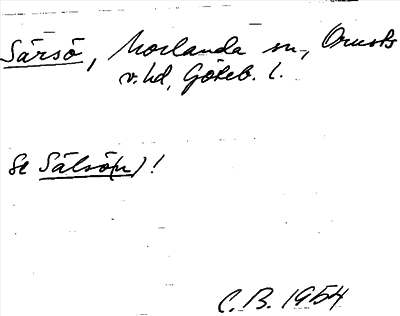 Särsö, Morlanda sn, Orusts
v. hd, Göteb. l.
Se Sälsö(n)!
C.B. 1954